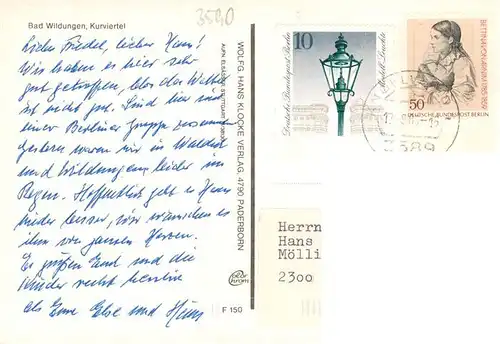 Bad Wildungen, Kurviertel
3590
Liebe Friedel, lieber Hans!
Wir haben es hier sehr
gut getroffen, blos das Wetter
ist nicht gut. Sind hier mit
einer Berliner Gruppe zusammen
Gestern waren wir in Waldeck
und Wildungen, leider im
Regen. Hoffentlich geht es Hans
wieder besser, wir wünschen es
ihm von ganzem Herzen.
Es grüßen Euch und die
Kinder recht herzlich
als Eure Else und Hans
WOLFG. HANS KLOCKE VERLAG, 4790 PADERBORN
10
Deutsche Bundespost Berlin
50
DEUTSCHE BUNDESPOST BERLIN
Herrn
Hans
Mölli
2300
F 150